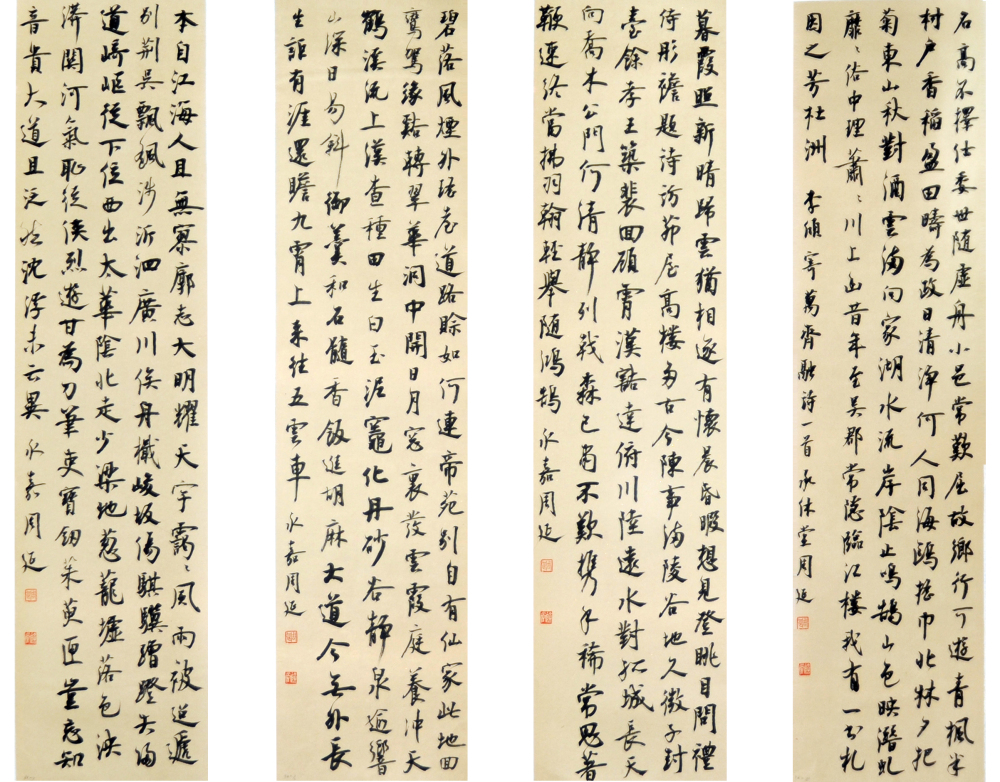 名高不擇仕委世隨虛舟小邑常歎屈故鄉行可遊青楓半
村戶香稻盈田疇為政日清淨何人同海鷗搖巾北林夕把
菊東山秋對酒雲滿向家湖水流岸陰止鳴鵠山色映潛虬
靡〻俗中理蕭〻川上幽昔年至吳郡常隱臨江樓我有一書札
因之芳杜洲 李頎寄萬齊融詩一首 承休堂周延
暮霞照新晴歸雲猶相逐有懷晨昏暇想見登眺目問禮
侍彤襜題詩訪茆屋高樓多古今陳事滿陵谷地久微子封
臺餘孝王築裴回顧霄漢豁達俯川陸遠水對孤城長天
向喬木公門何清靜列戟森已肅不歎攜手稀常思著
鞭速終當拂羽翰輕舉隨鴻鵠 永嘉周延
碧落風煙外瑤臺道路賒如何連帝苑別自有仙家此地回
鸞駕緣谿轉翠華洞中開日月窗裏發雲霞庭養沖天
鶴溪流上漢查種田生白玉泥竈化丹砂谷靜泉逾響
山深日易斜御羹和石髓香飯進胡麻大道今無外長
生詎有涯還瞻九霄上來往五雲車 永嘉周延
本自江海人且無寥廓志大明耀天宇靄〻風雨被迢遞
別荊吳飄颻涉沂泗廣川俟舟檝峻坂傷騏驥蹭蹬失歸
道崎嶇從下位西出太華陰北走少梁地蔥蘢墟落色泱
漭關河氣恥從俠烈遊甘為刀筆吏寶劍茱萸匣豈忘知
音貴大道且泛然沈浮未云異 永嘉周延